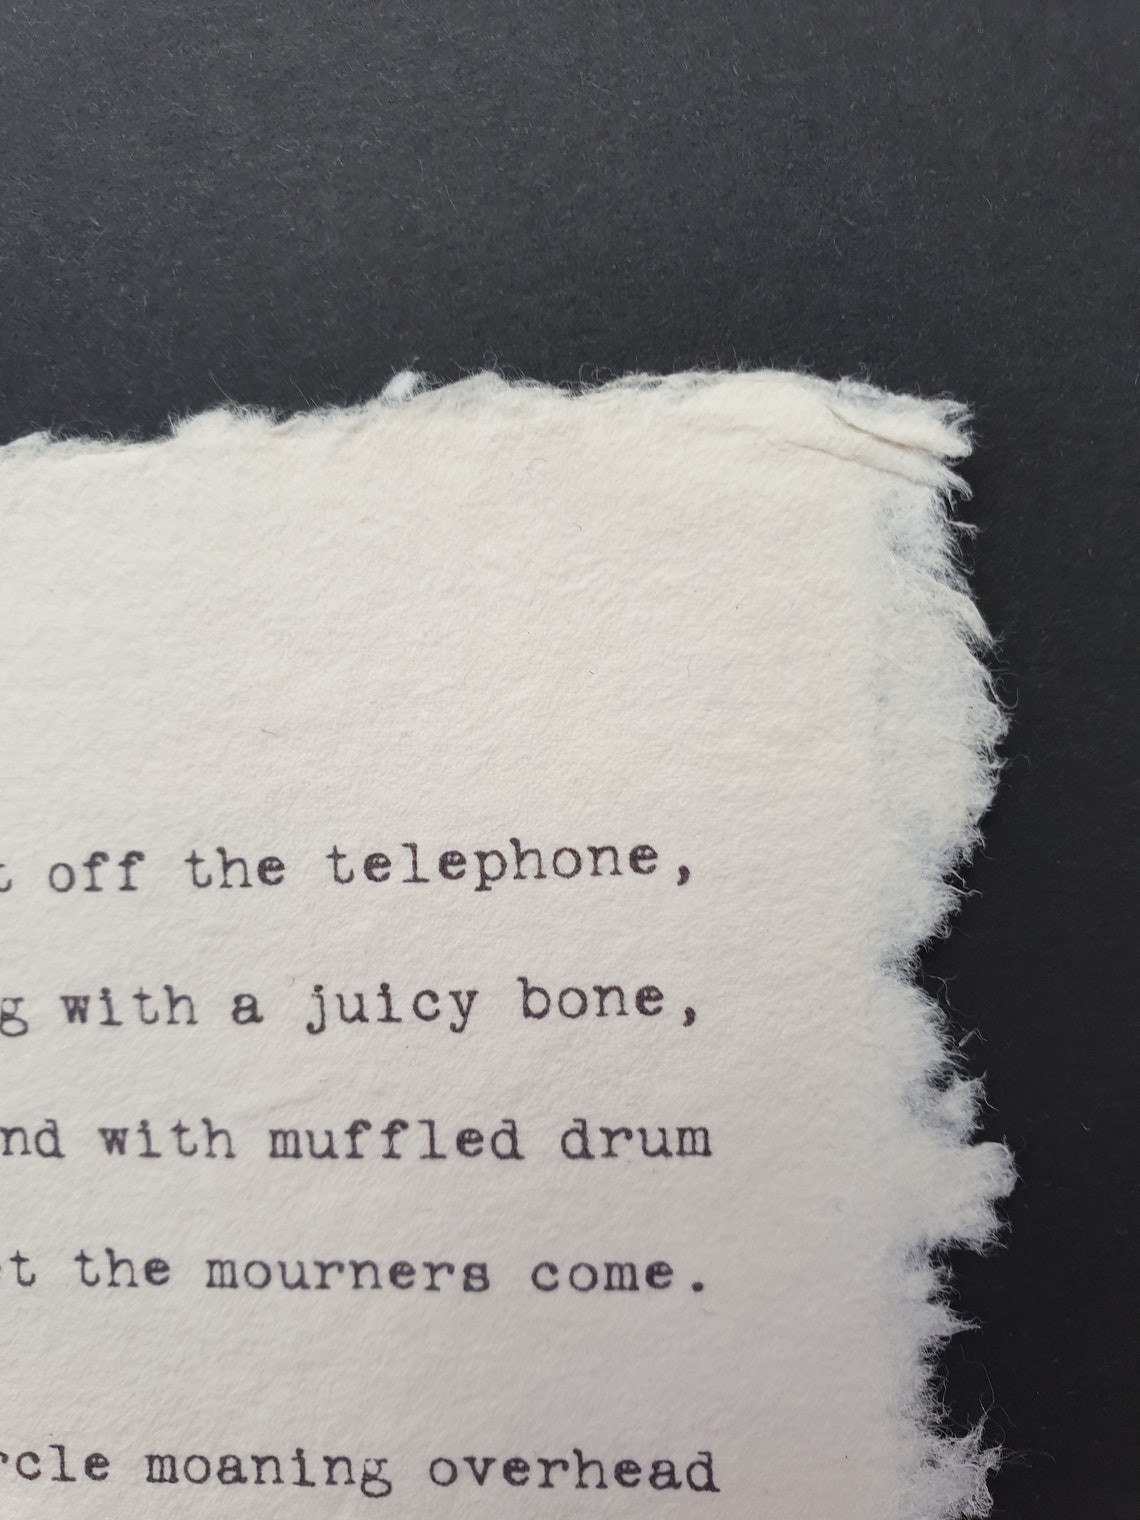 t off the telephone,
g with a juicy bone,
nd with muffled drum
t the mourners come.
rcle moaning overhead